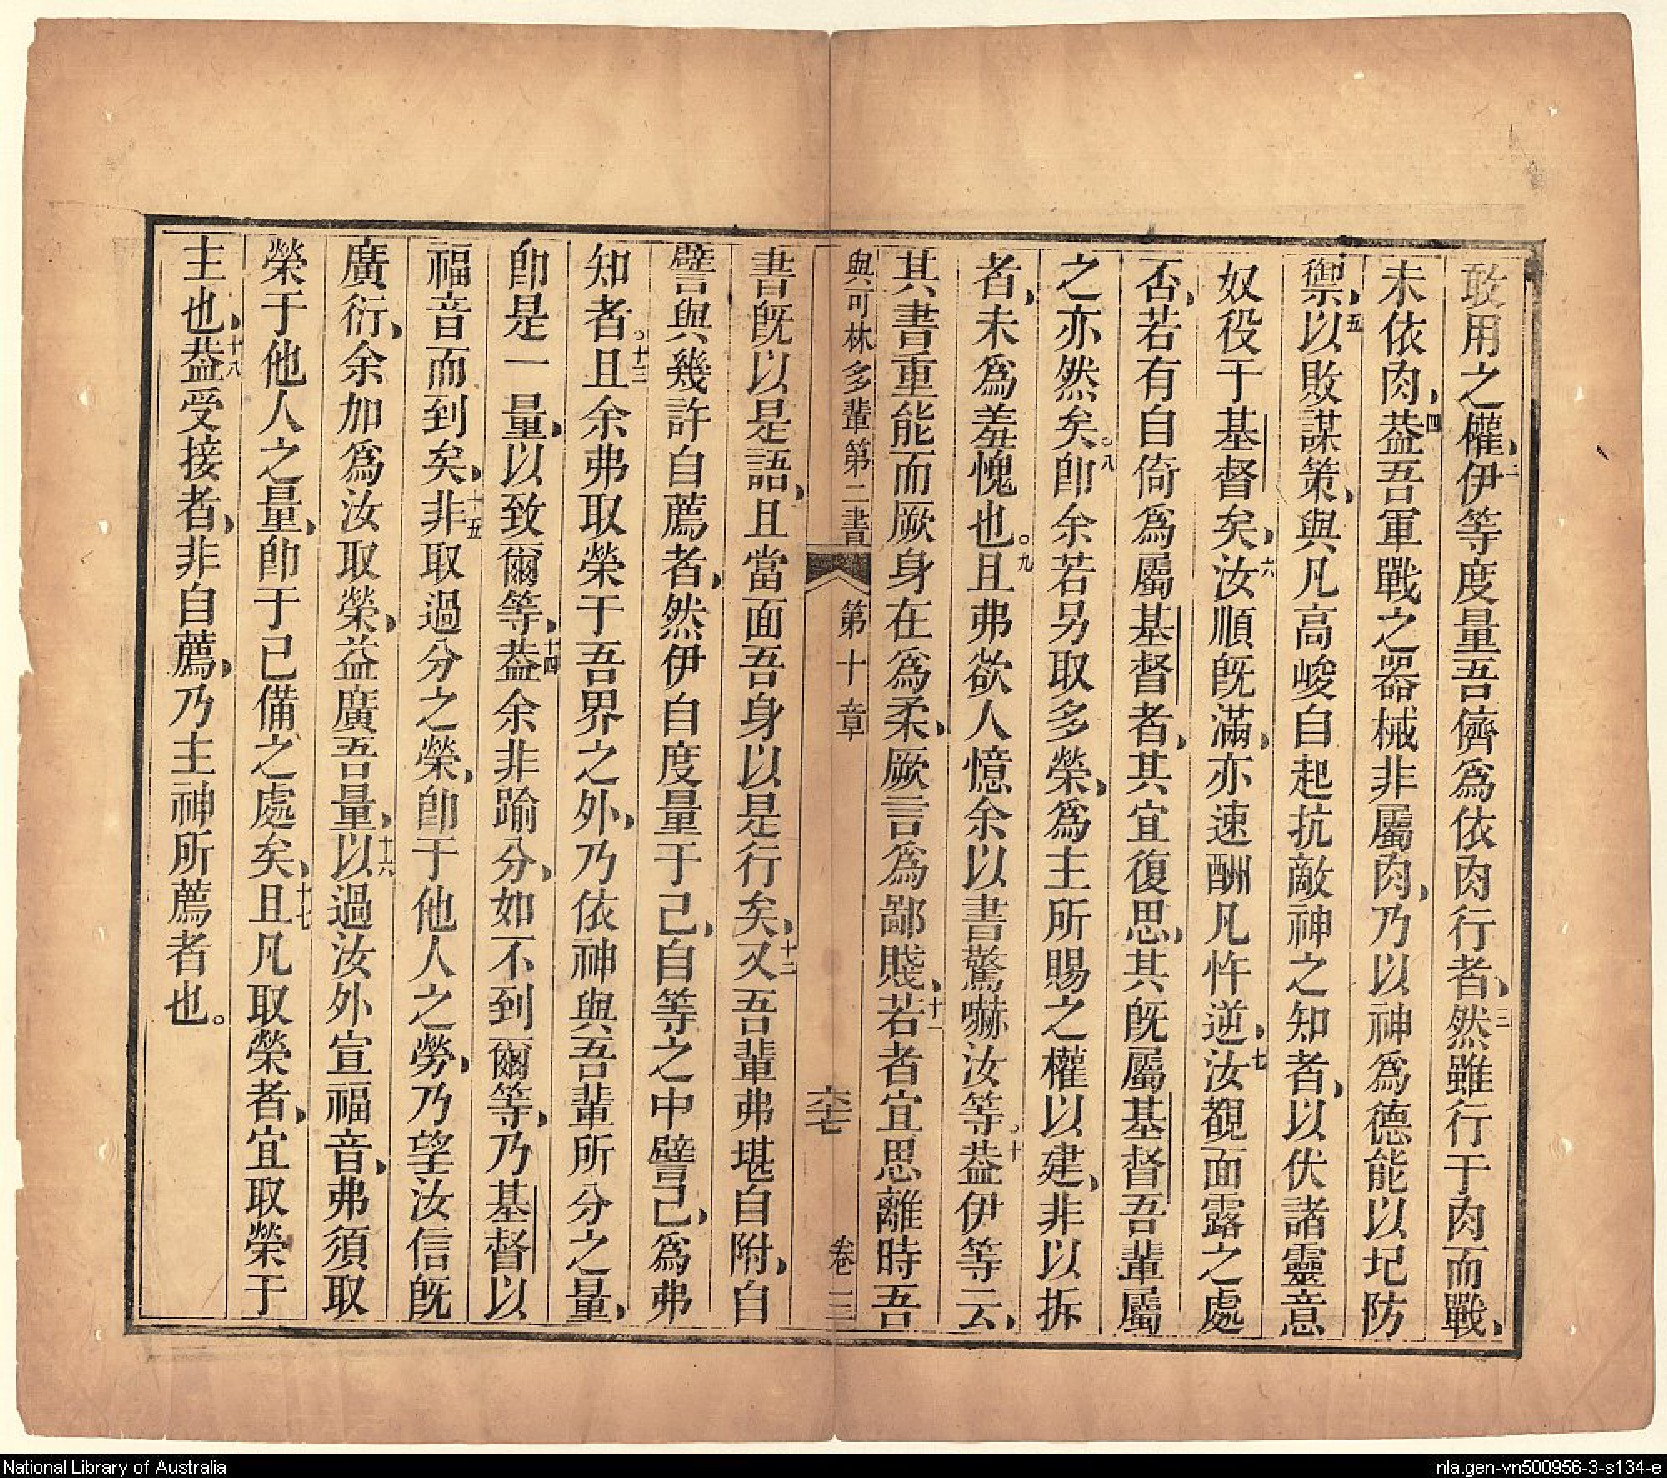 敢用之權、二伊等度量吾儕爲依肉行者、三然雖行于肉而戰、
未依肉、四葢吾軍戰之器械非屬肉、乃以神爲德能以圮防
禦、五以敗謀策、與凡高峻自起抗敵神之知者、以伏諸靈意
奴役于基督矣、六汝順旣滿、亦速酬凡忤逆、七汝觀面露之處
否、若有自倚爲屬基督者、其宜復思、其旣屬基督吾輩屬
之亦然矣。八卽余若另取多榮、爲主所賜之權以建、非以拆
者、未爲羞愧也。九且弗欲人憶余以書驚嚇汝等。十葢伊等云、
其書重能而厥身在爲柔、厥言爲鄙賤、十一若者宜思離時吾
與可林多輩第二書 第十章 六七 卷三
書旣以是語、且當面吾身以是行矣、十二又吾輩弗堪自附、自
譬與幾許自薦者、然伊自度量于己、自等之中譬己、爲弗
知者。十三且余弗取榮于吾界之外、乃依神與吾輩所分之量、
卽是一量、以致爾等、十四葢余非踰分、如不到爾等、乃基督以
福音而到矣、十五非取過分之榮、卽于他人之勞、乃望汝信旣
廣衍、余加爲汝取榮、益廣吾量、十六以過汝外宣福音、弗須取
榮于他人之量、卽于己備之處矣、十七且凡取榮者、宜取榮于
主也、十八葢受接者、非自薦、乃主神所薦者也。
National Library of Australia
nla.gen-vn500956-3-s134-e